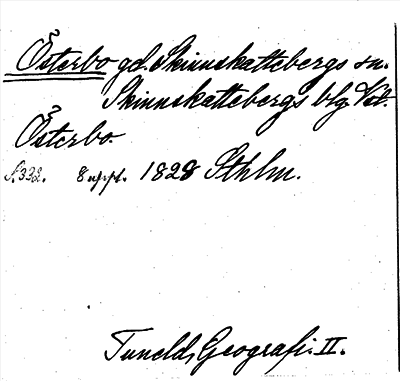 Österbo gd. Skinnskattebergs sn.
Skinnskattebergs blg Vstl.
Österbo.
S. 332. 8 uppl. 1828 Sthlm.
Tuneld, Geografi. II.